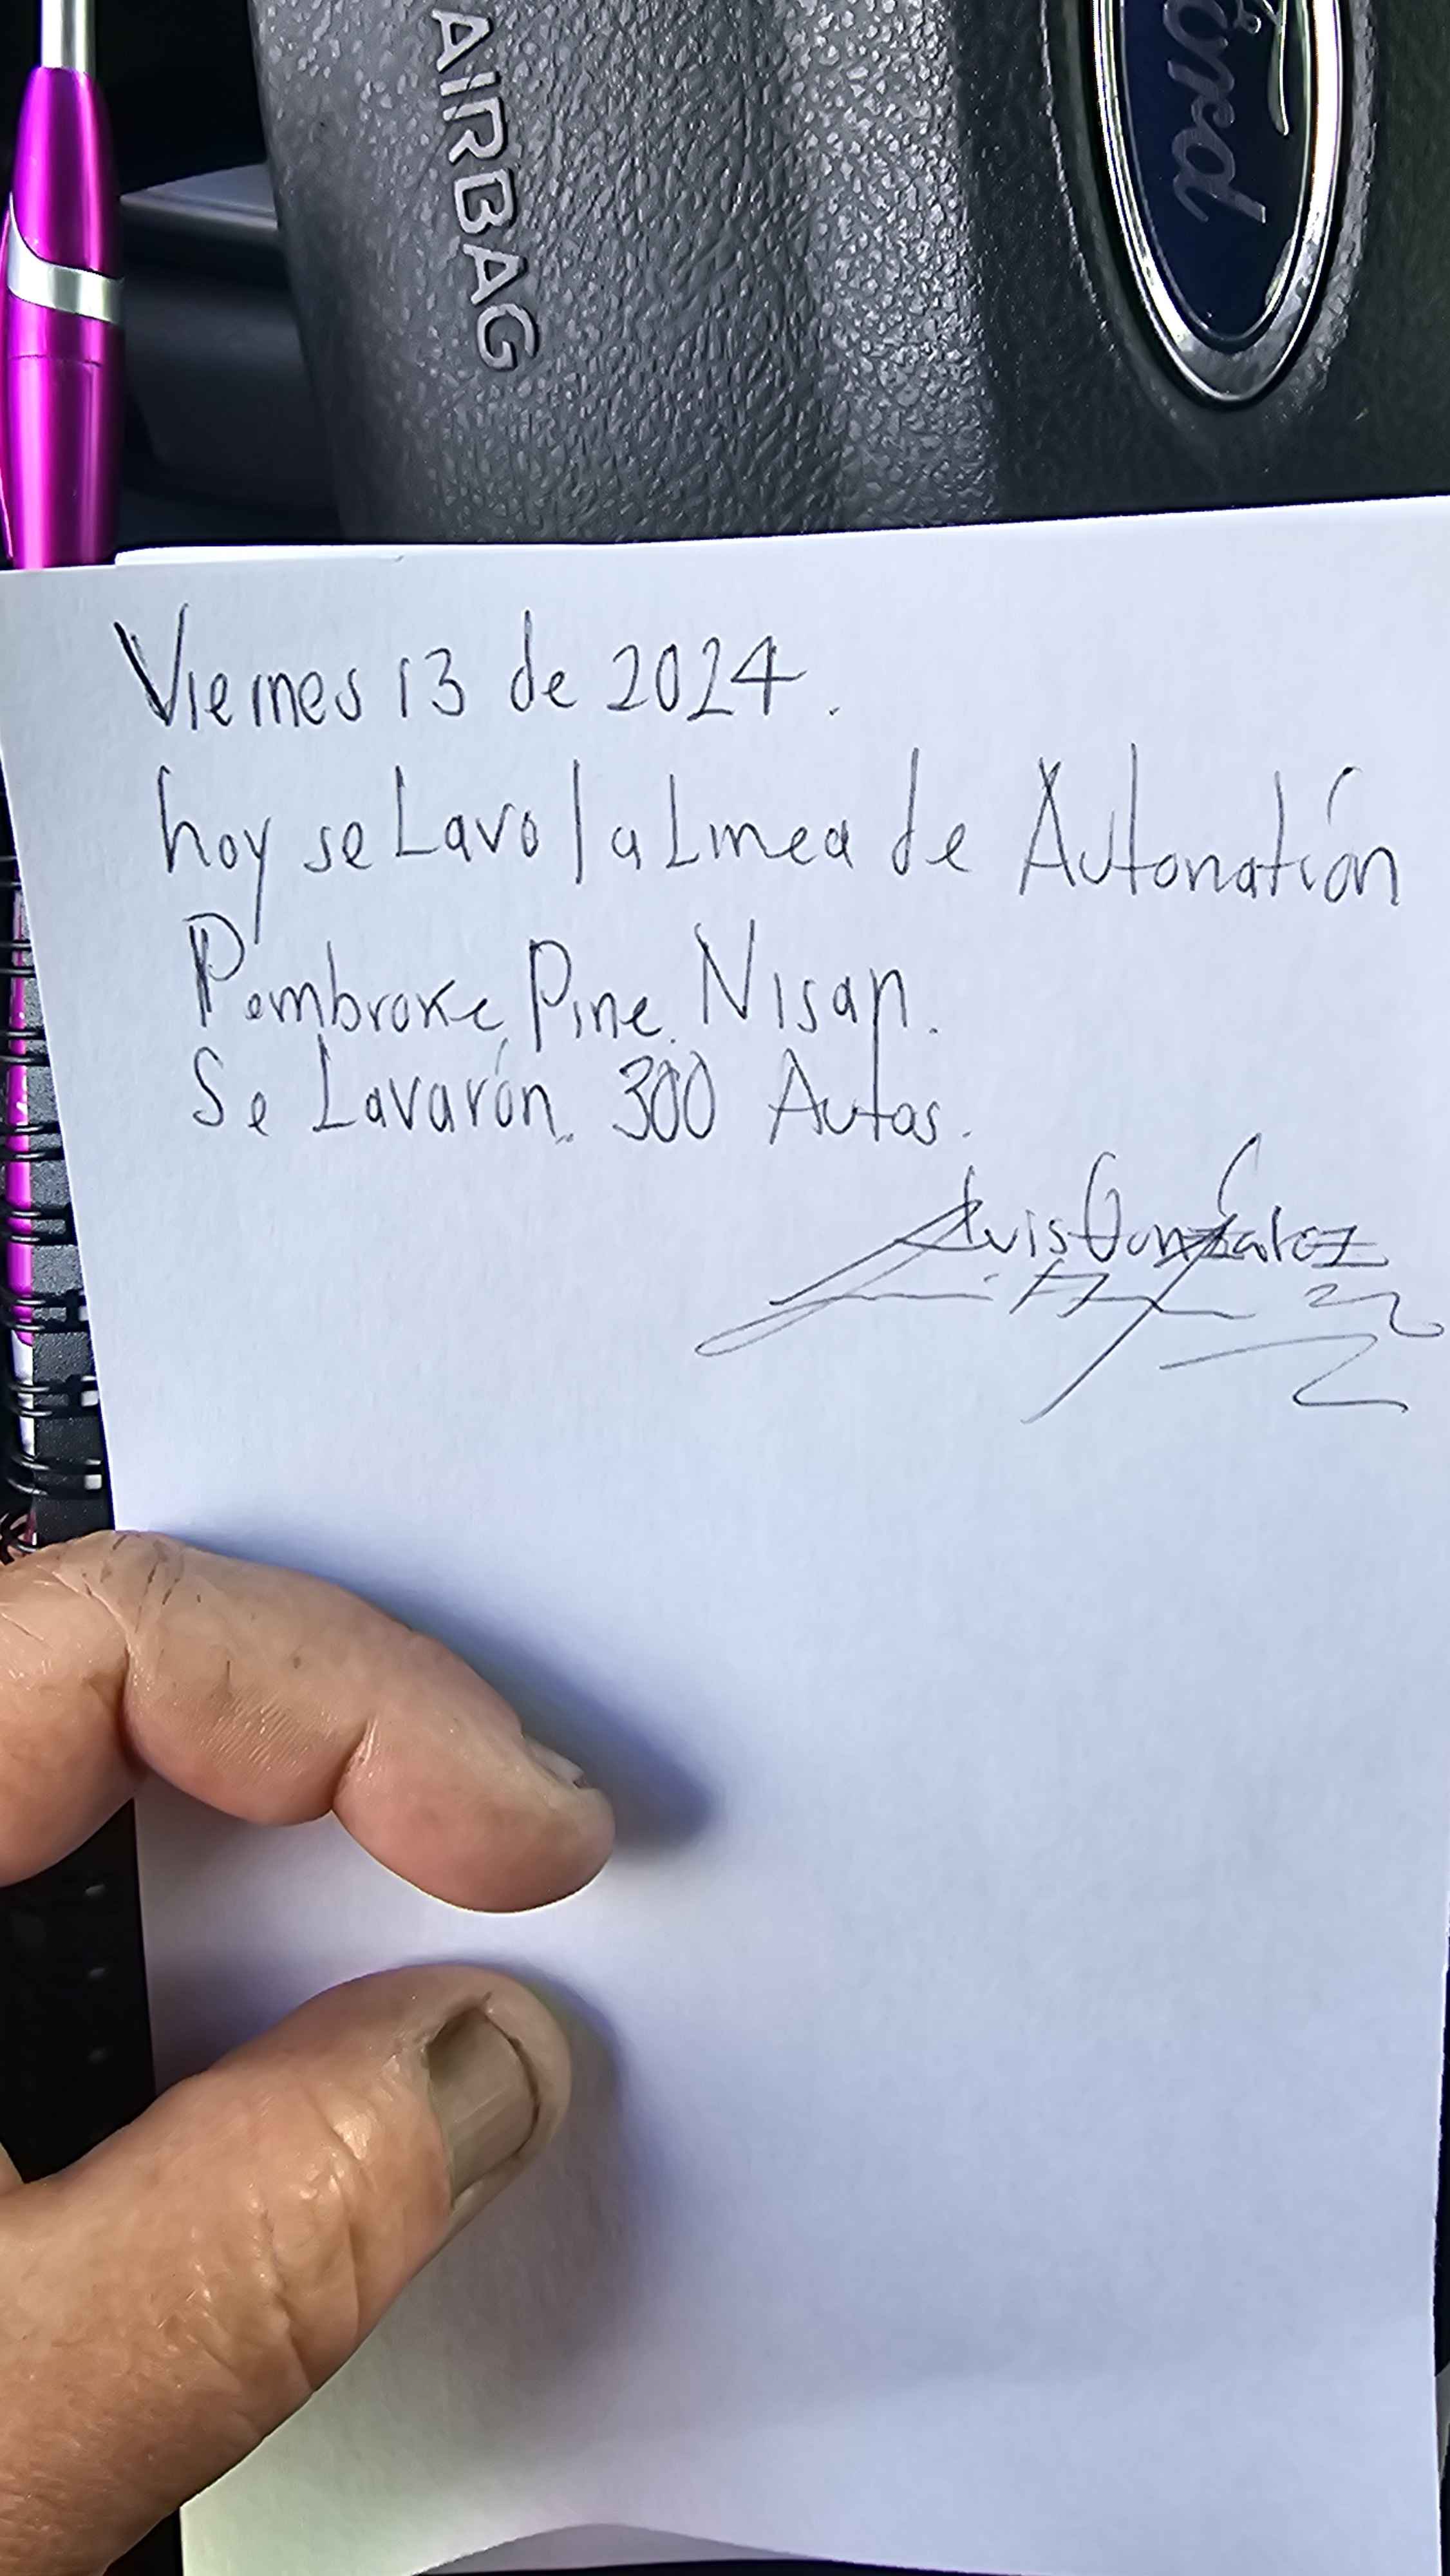 AIRBAG
Ford
Viernes 13 de 2024.
hoy se Lavo la Linea de Autonatión
Pembroke Pine. Nisan.
Se Lavarón. 300 Autos.
Luis González